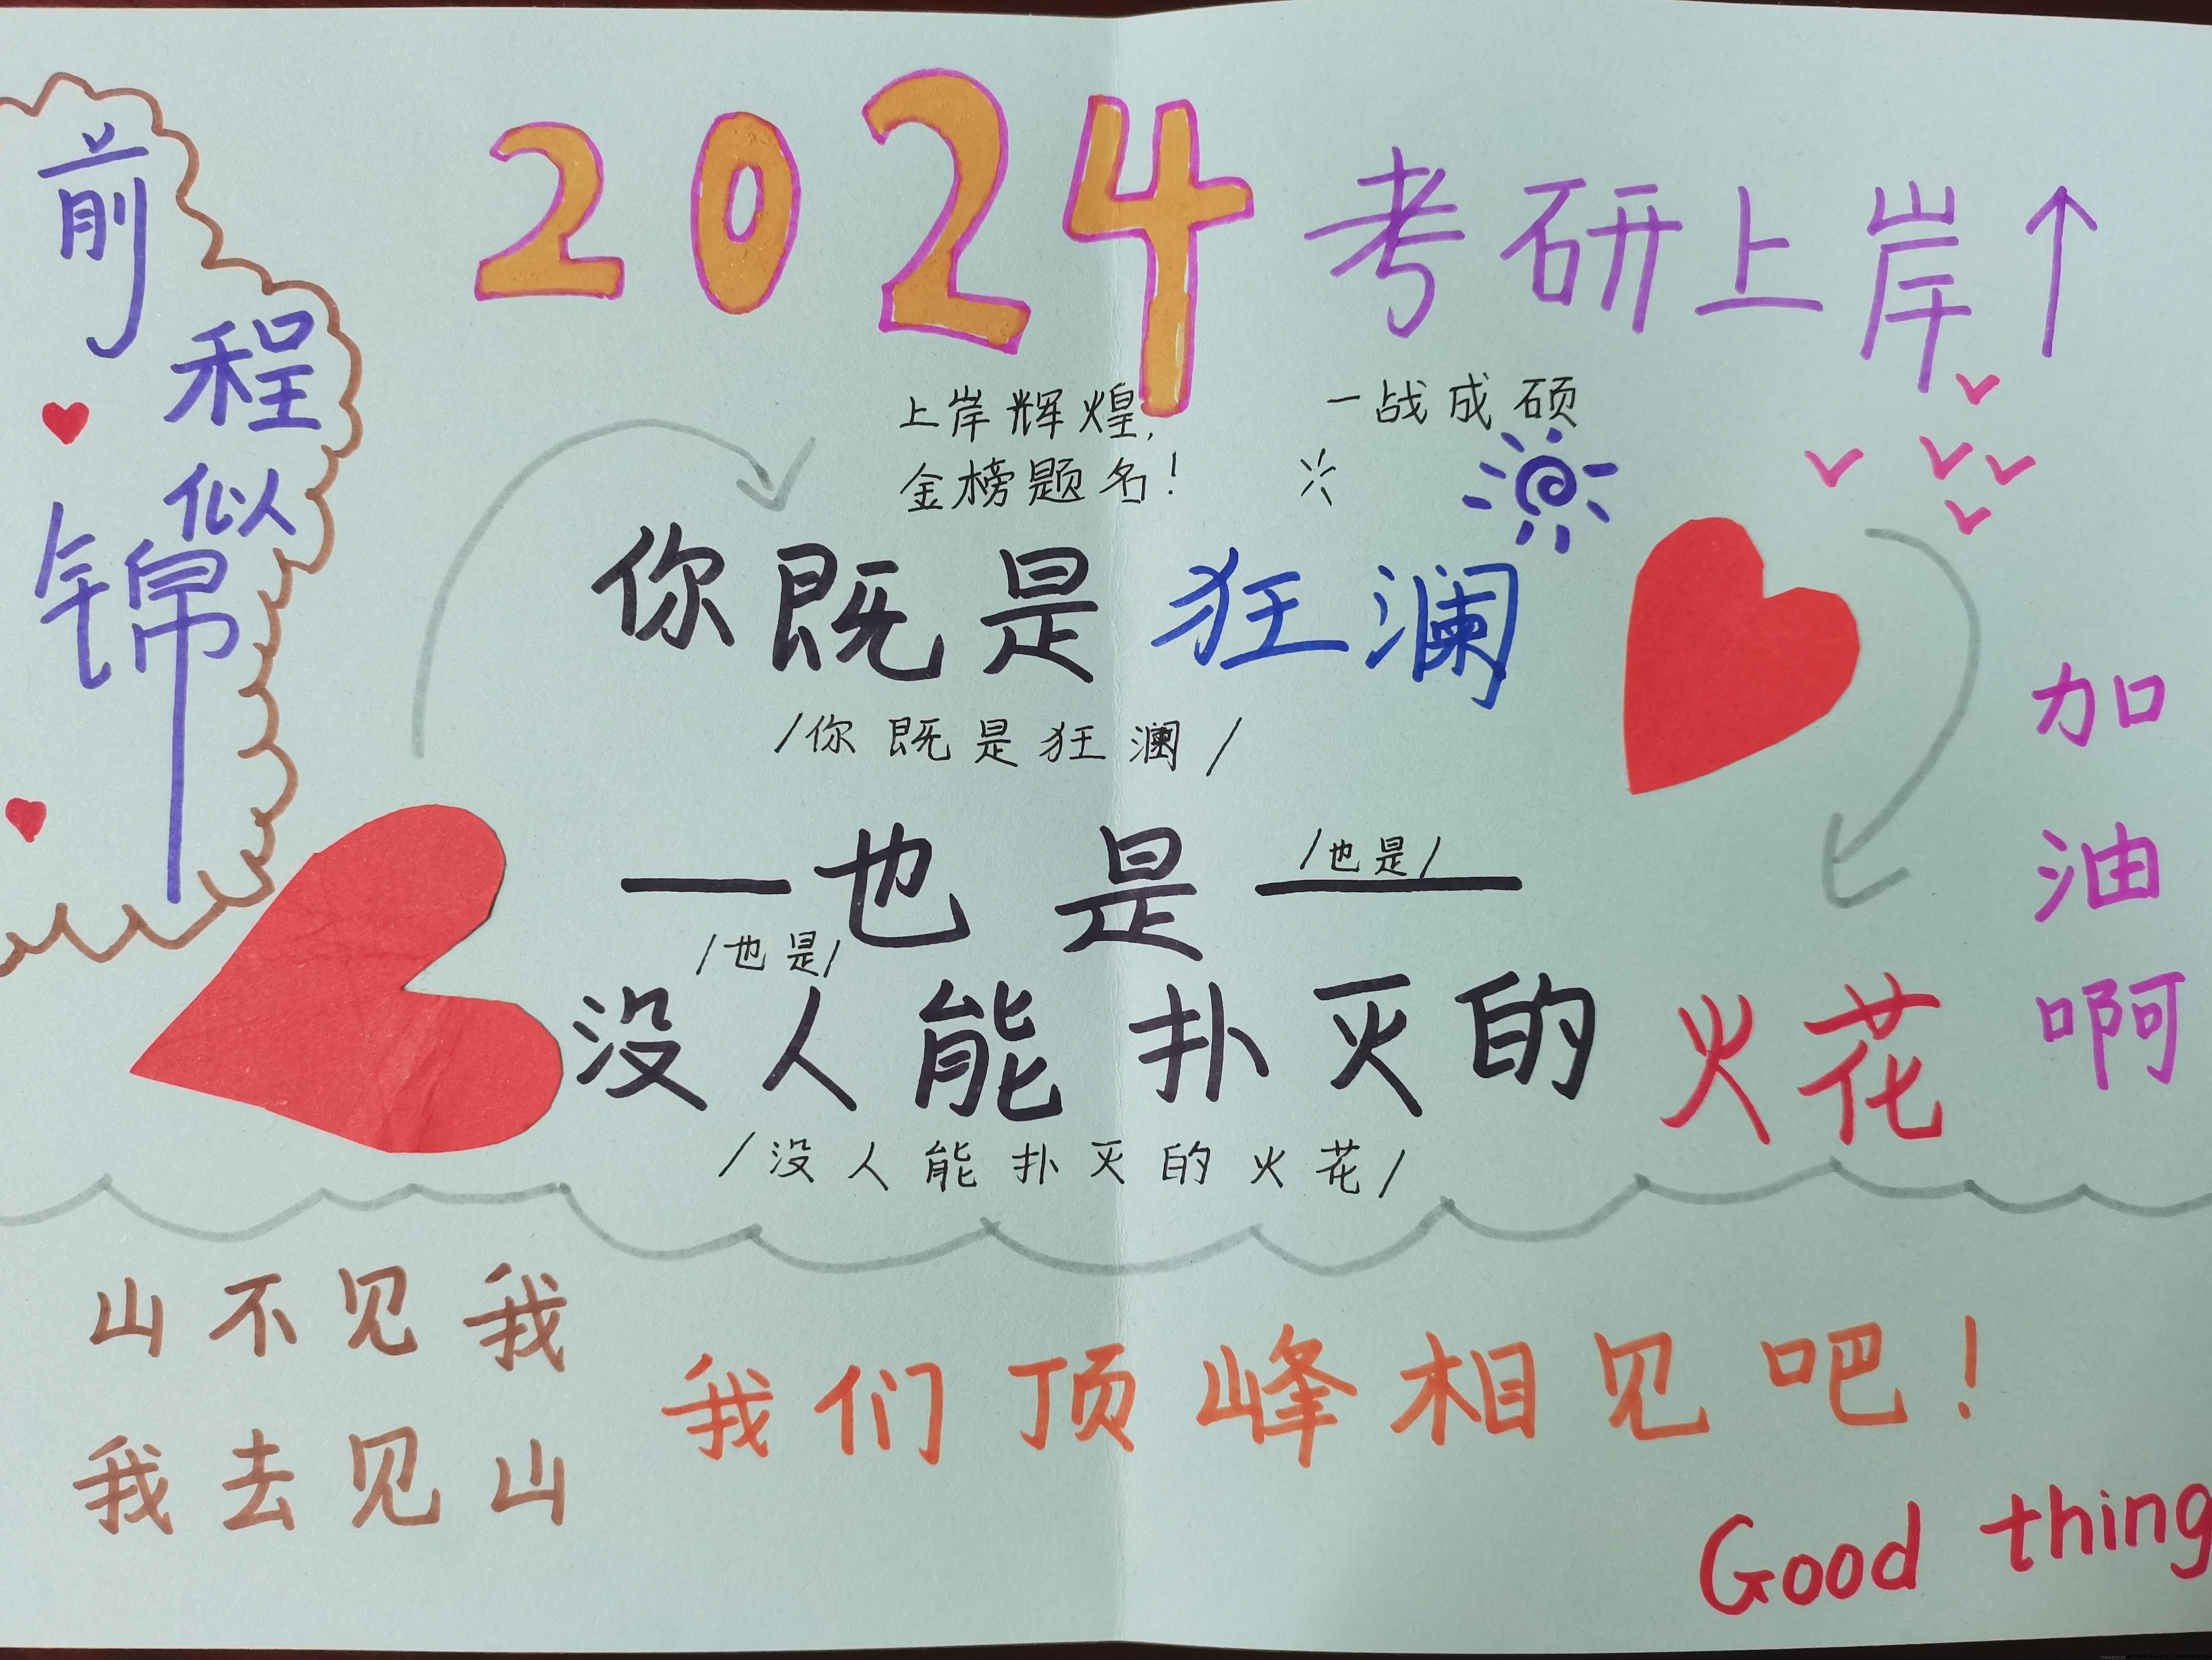 2024 考研上岸↑
前
程
似
锦
上岸辉煌,
金榜题名!
一战成硕
你既是狂澜
/你既是狂澜/
——也是——
/也是/
/也是/
没人能扑灭的火花
/没人能扑灭的火花/
加
油
啊
山不见我
我去见山
我们顶峰相见吧!
Good thing